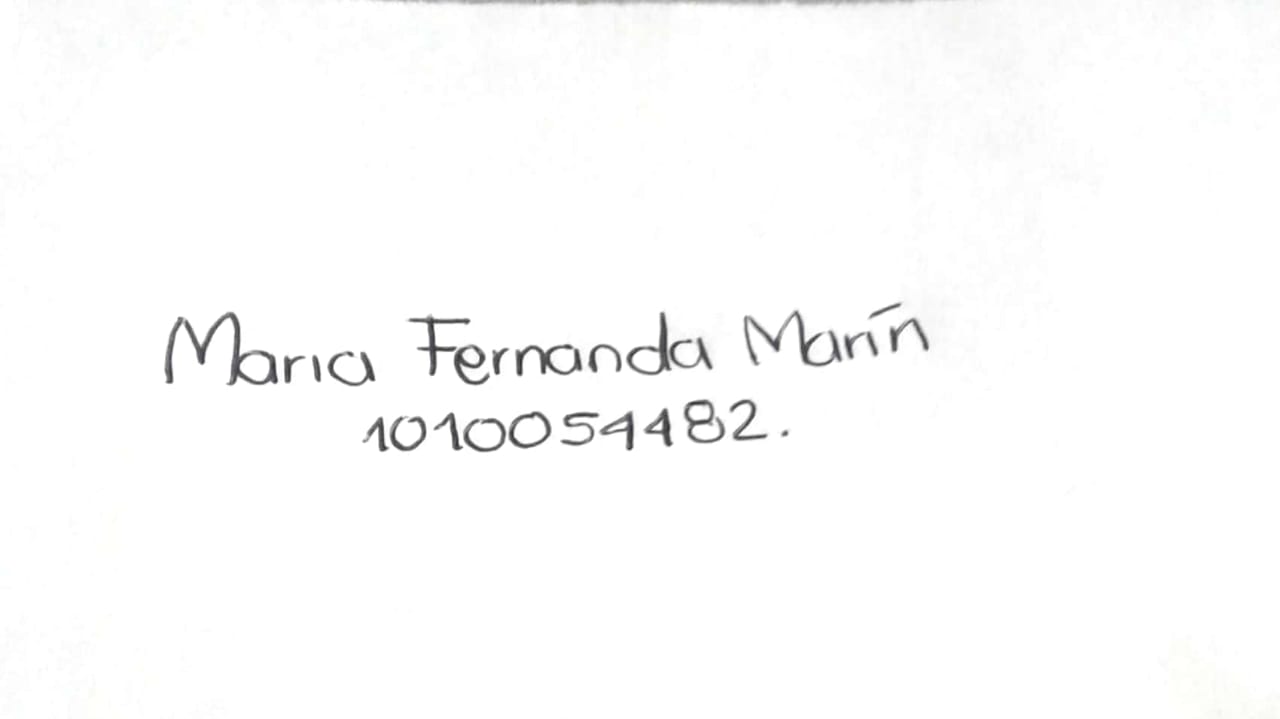 Maria Fernanda Marín
1010054482.